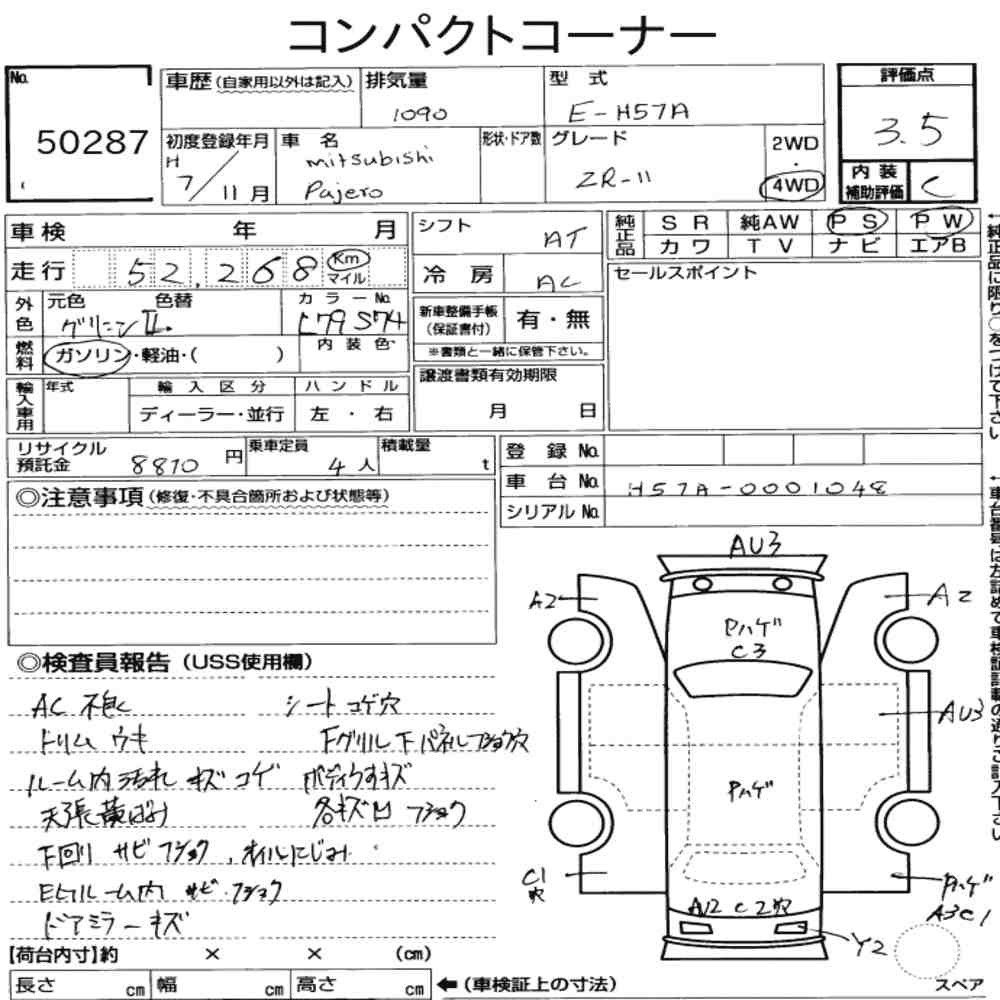 コンパクトコーナー
No.
50287
車歴(自家用以外は記入)
排気量
1090
型 式
E-H57A
評価点
3.5
内装補助評価
C
初度登録年月
H 7/11月
車 名
mitsubishi
Pajero
形状・ドア数
グレード
ZR-II
2WD
・
4WD
車検 年 月
シフト
AT
純正品
SR 純AW PS PW
カワ TV ナビ エアB
走行 52,268 Km マイル
冷 房
AC
セールスポイント
外色
元色 色替
グリーンII.
カラーNo.
内装色
新車整備手帳
(保証書付)
有・無
※書類と一緒に保管下さい。
燃料
ガソリン・軽油・( )
輸入車用
年式
輸入区分
ディーラー・並行
ハンドル
左 ・ 右
譲渡書類有効期限
月 日
リサイクル預託金
8810円
乗車定員
4人
積載量
t
登 録 No.
車 台 No.
H57A-0001048
シリアル No.
◎注意事項(修復・不具合箇所および状態等)
◎検査員報告(USS使用欄)
AC 不良 シートコゲ穴
トリム ウキ Fグリル下パネルフショク穴
ルーム内汚れ キズ コゲ ボディウすキズ
天張黄ばみ 各キズ凹 フショク
下回り サビフショク、オイルにじみ
Eルーム内 サビ・フショク
ドアミラーキズ
AU3
A2
A2
Pハゲ
C3
AU3
Pハゲ
C1
穴
Pハゲ
A3C1
A12 C2穴
Y2
スペア
【荷台内寸】約 × × (cm)
長さ cm 幅 cm 高さ cm
←(車検証上の寸法)